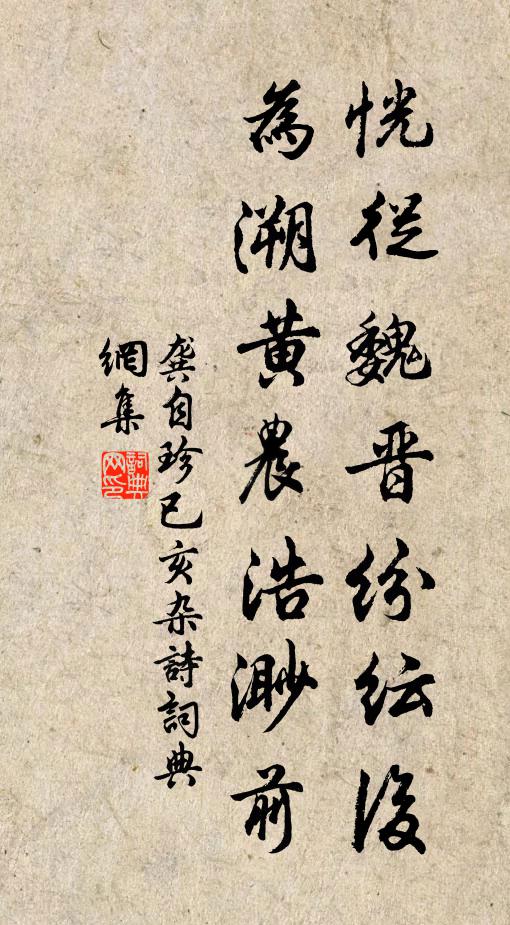 恍從魏晉紛紜後
為溯黃農浩渺前
龔自珍己亥杂詩詞典
網集
詞典網印